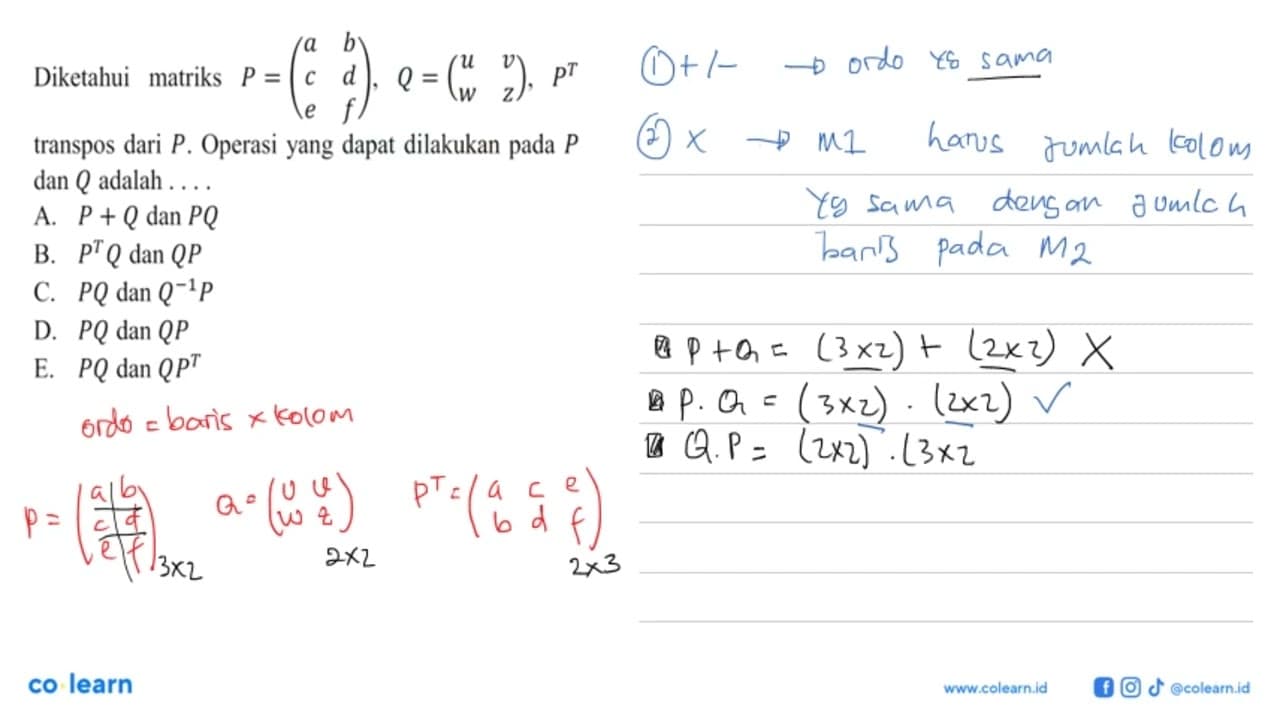 Diketahui matriks P = (a b c d e f), Q = (u v w z), Pᵀ
transpos dari P. Operasi yang dapat dilakukan pada P
dan Q adalah . . . .
A. P + Q dan PQ
B. PᵀQ dan QP
C. PQ dan Q⁻¹P
D. PQ dan QP
E. PQ dan QPᵀ
ordo = baris x kolom
P = (a b c d e f) 3x2
Q = (u v w z) 2x2
Pᵀ = (a c e b d f) 2x3
① + / - → ordo yg sama
② x → M1 harus jumlah kolom
yg sama dengan jumlah
baris pada M2
P + Q = (3x2) + (2x2) X
P . Q = (3x2) . (2x2) ✓
Q . P = (2x2) . (3x2
co learn
www.colearn.id
@colearn.id